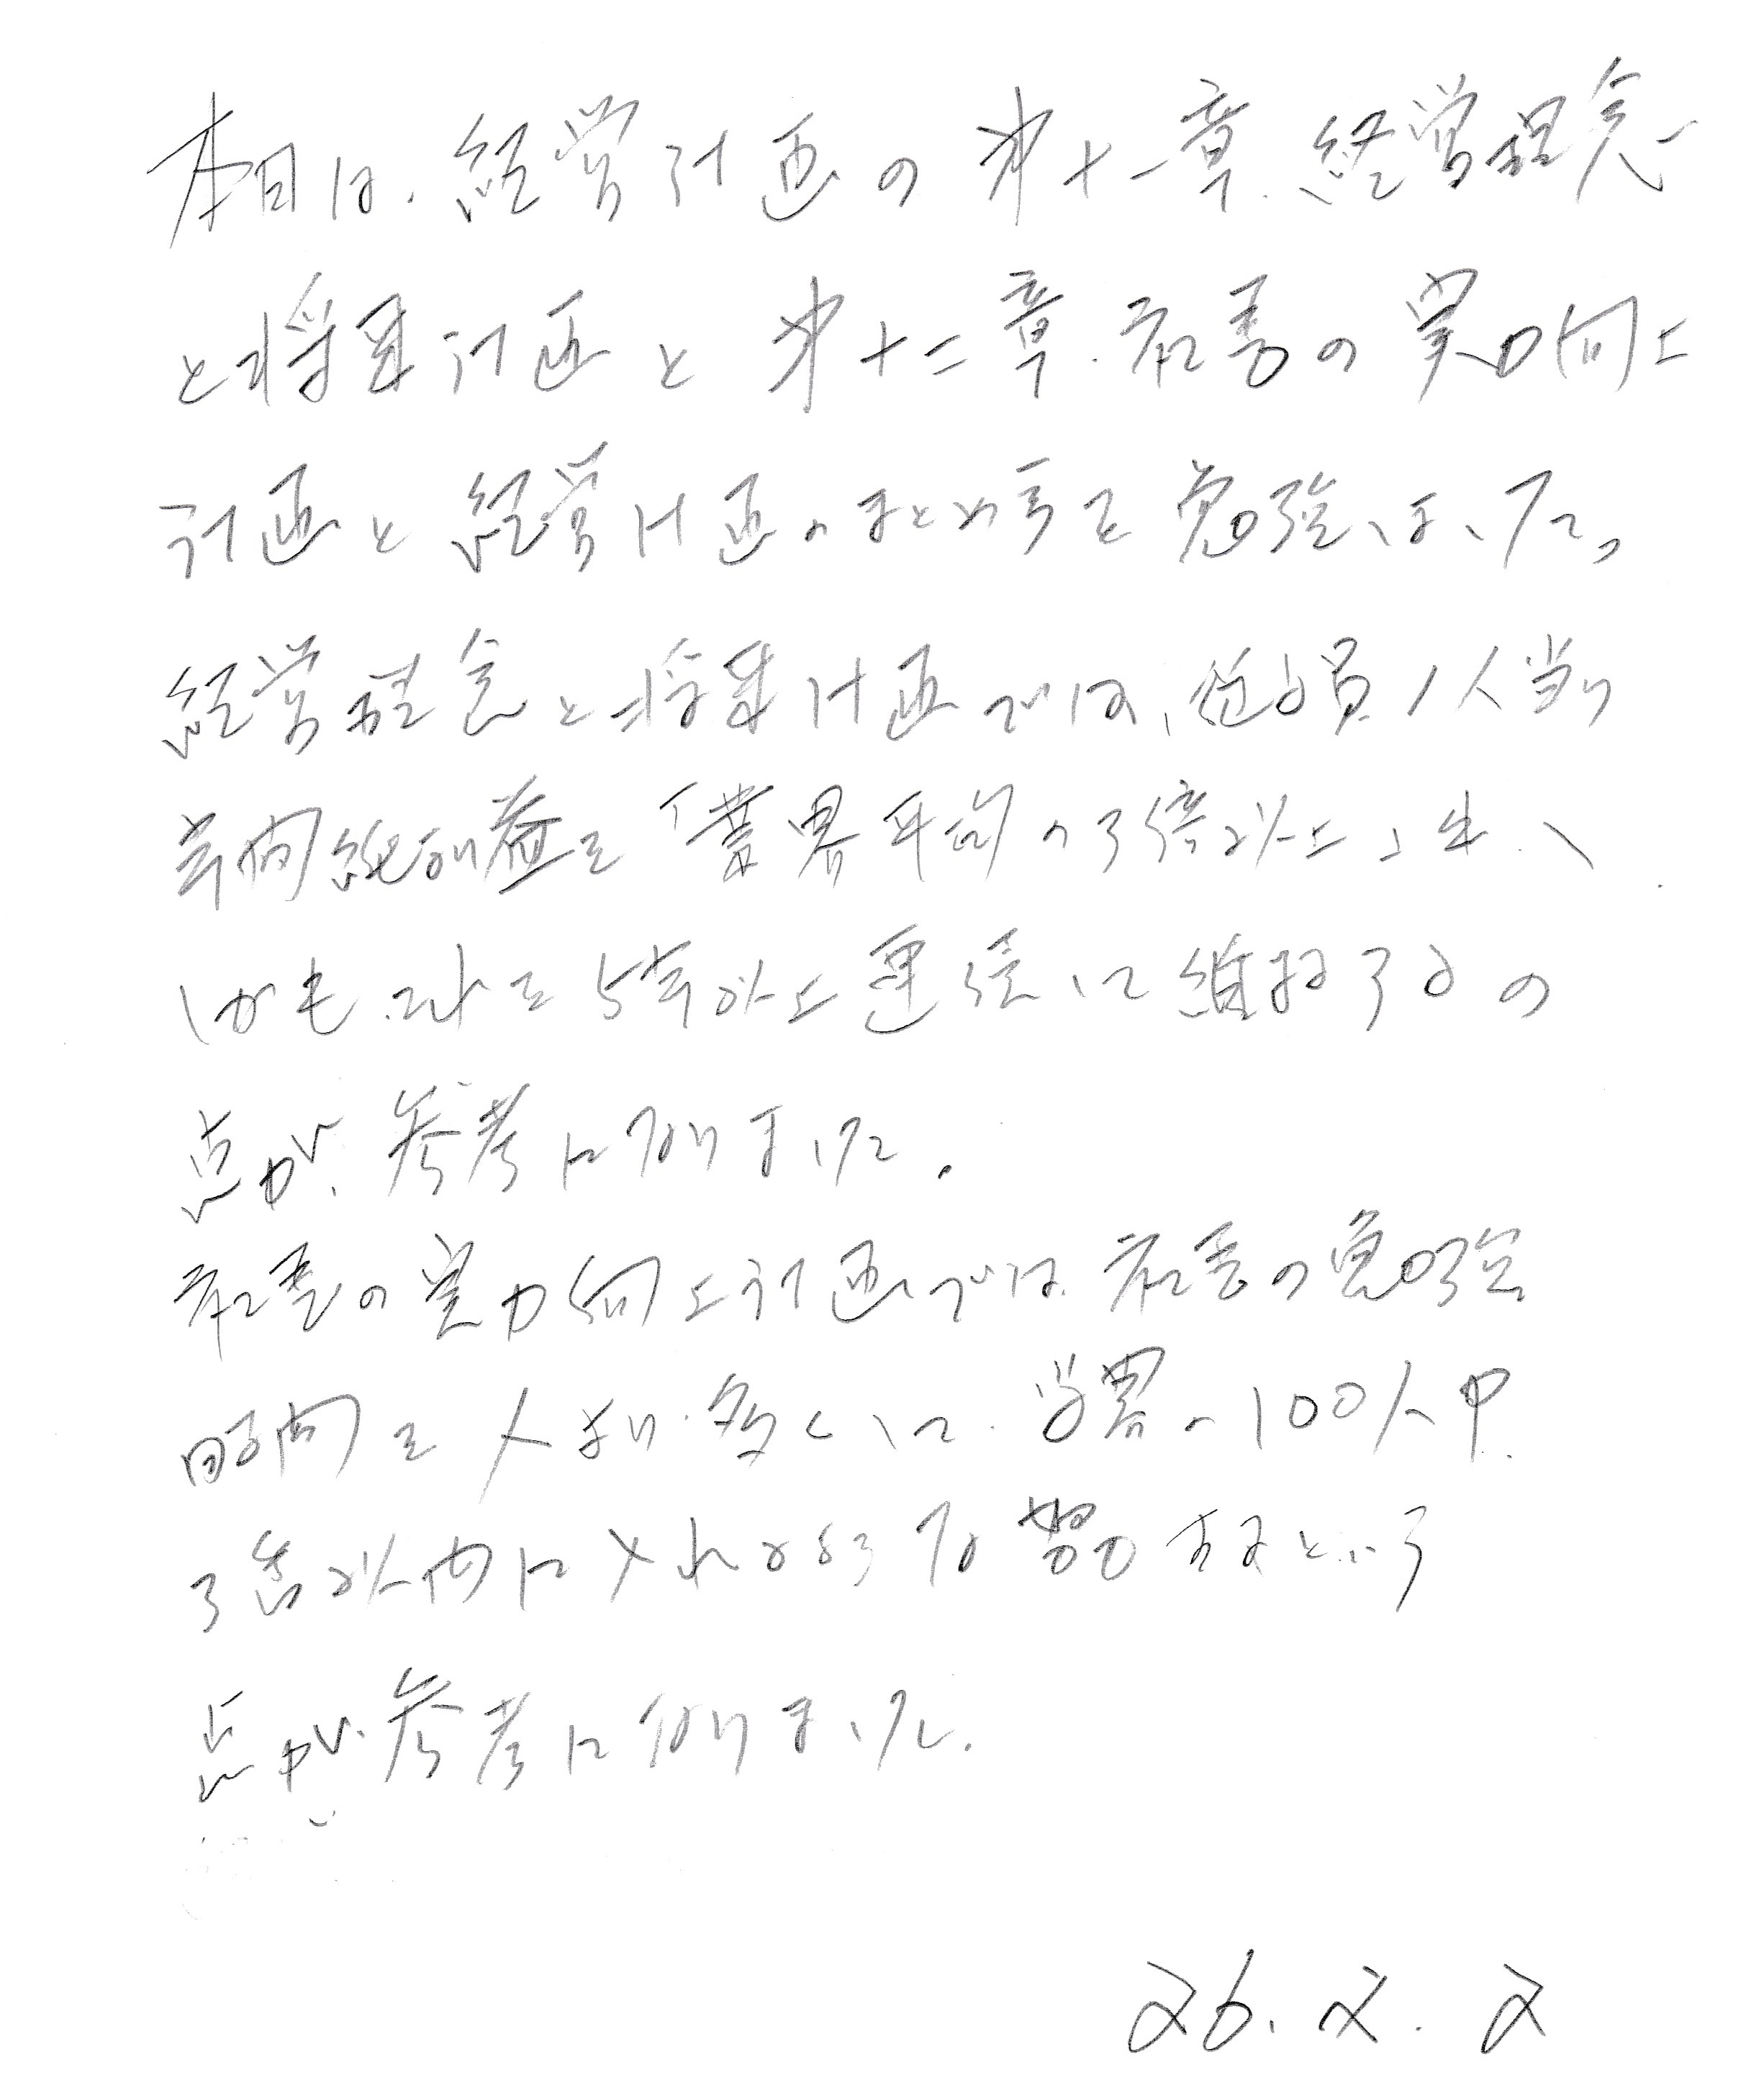 本日は、経営計画の第十一章、経営理念
と将来計画と第十二章、社長の実力向上
計画と経営計画のまとめ方を勉強しました。
経営理念と将来計画では、従業員1人当り
年間純利益を「業界平均の3倍以上」出し、
しかもこれを5年以上連続して維持するの
点が、参考になりました。
社長の実力向上計画では、社長の勉強
時間を人より多くして、業界の100人中
3番以内に入れるような努力するという
点が、参考になりました。
26.2.2